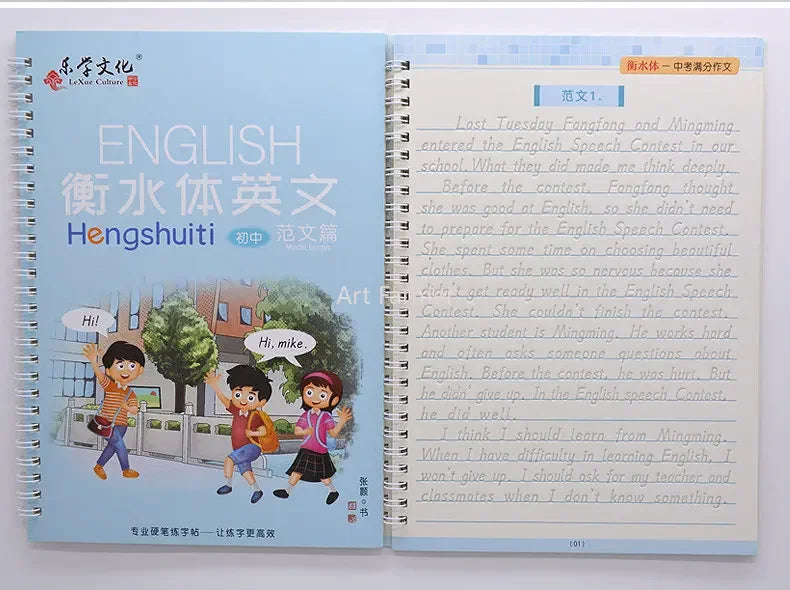 乐学文化®
LeXue Culture
ENGLISH
衡水体英文
Hengshuiti 初中 范文篇
Hi!
Hi, mike.
张颢·书
专业硬笔练字帖——让练字更高效
Art
衡水体—中考满分作文
范文1.
Last Tuesday Fangfang and Mingming
entered the English Speech Contest in our
school. What they did made me think deeply.
Before the contest, Fangfang thought
she was good at English, so she didn't need
to prepare for the English Speech Contest.
She spent some time on choosing beautiful
clothes. But she was so nervous because she
didn't get ready well in the English Speech
Contest. She couldn't finish the contest.
Another student is Mingming. He works hard
and often asks someone questions about
English. Before the contest, he was hurt. But
he didn't give up. In the English speech Contest,
he did well.
I think I should learn from Mingming.
When I have difficulty in learning English, I
won't give up. I should ask for my teacher and
classmates when I don't know something.
(01)